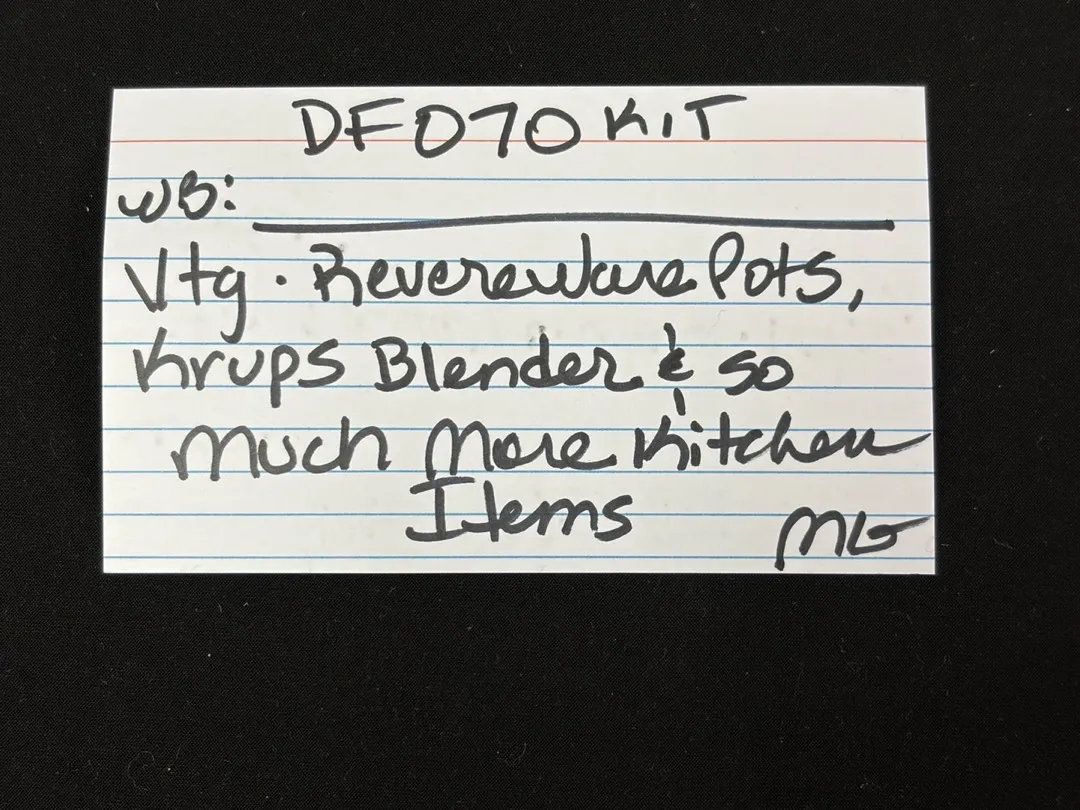 DF070 KIT
WB:
Vtg. Revereware Pots,
Krups Blender & so
much more Kitchen
Items MG